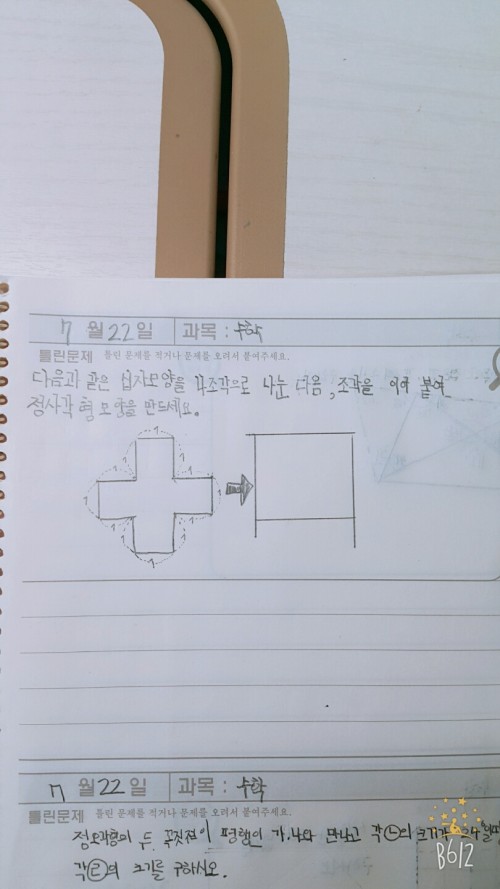 7 월 22 일 과목 : 수학
틀린문제 틀린 문제를 적거나 문제를 오려서 붙여주세요.
다음과 같은 십자모양을 4조각으로 나눈 다음, 조각을 이어 붙여
정사각형 모양을 만드세요.
1 1 1 1 1 1 1 1 1 1 1 1
7 월 22 일 과목 : 수학
틀린문제 틀린 문제를 적거나 문제를 오려서 붙여주세요.
두 꼭짓점이 평행인 가, 나와 만나고 각㉡의 크기가
각㉣의 크기를 구하시오.
B612